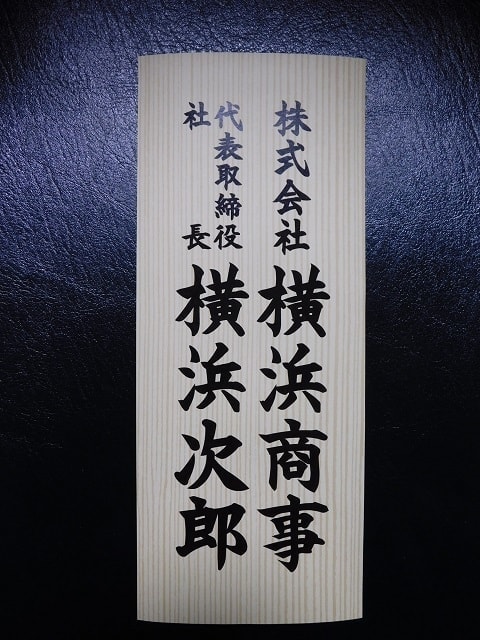 株式会社 横浜商事
代表取締役
社長 横浜次郎